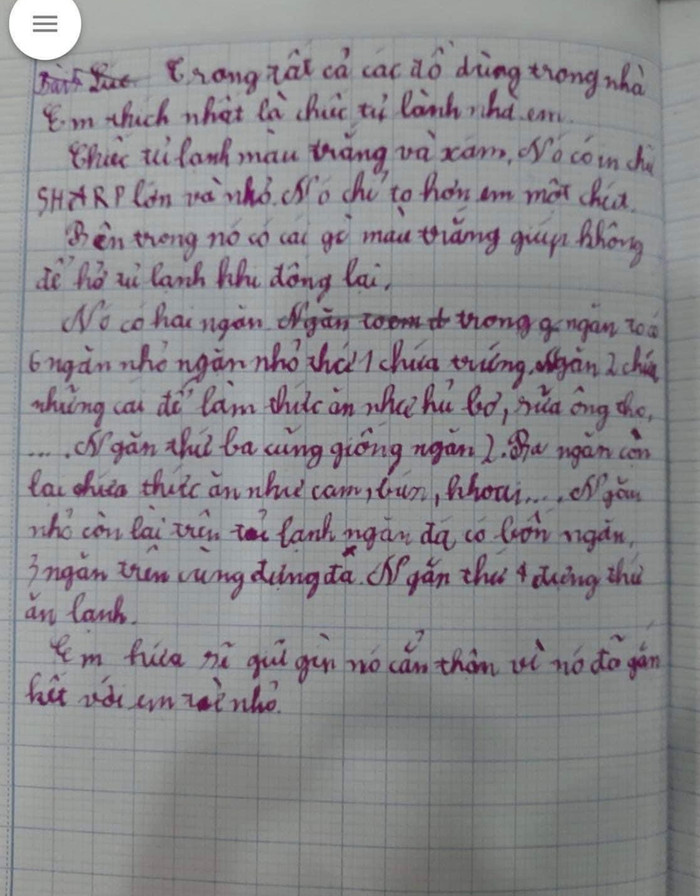 Trong tất cả các đồ dùng trong nhà
Em thích nhất là chiếc tủ lành nhà em.
Chiếc tủ lạnh màu trắng và xám. Nó có in chữ
SHARP lớn và nhỏ. Nó chỉ to hơn em một chút.
Bên trong nó có cái gờ màu trắng giúp không
để hở tủ lạnh khi đông lại.
Nó có hai ngăn. Ngăn trong ngăn to có
6 ngăn nhỏ ngăn nhỏ thứ 1 chứa trứng. Ngăn 2 chứa
những cái để làm thức ăn như hủ bơ, sữa ông thọ,
.... Ngăn thứ ba cũng giống ngăn 2. Ba ngăn còn
lại chứa thức ăn như cam, bún, khoai.... Ngăn
nhỏ còn lại trên lanh ngăn đá có bốn ngăn,
3 ngăn trên cùng đựng đá. Ngăn thứ 4 đựng thứ
ăn lanh.
Em hứa sẽ giữ gìn nó cẩn thân vì nó đã gắn
kết với em từ nhỏ.